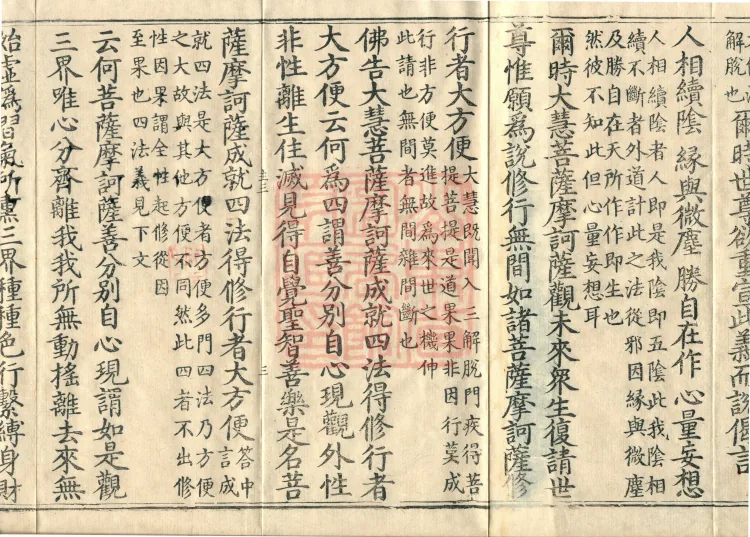 解脫也 爾時世尊欲重宣此義而說偈言
人相續陰 緣與微塵 勝自在作 心量妄想
人相續陰者人即是我陰即五陰此我陰相
續不斷者外道計此之法從邪因緣與微塵
及勝自在天所作作即生也
然彼不知此但心量妄想耳
爾時大慧菩薩摩訶薩觀未來眾生復請世
尊惟願爲說修行無間如諸菩薩摩訶薩修
行者大方便
大慧既聞入三解脫門疾得菩
提菩提是道果果非因行莫成
行非方便莫進故爲來世之機伸
此請也無間者無間雜間斷也
佛告大慧菩薩摩訶薩成就四法得修行者
大方便云何爲四謂善分別自心現觀外性
非性離生住滅見得自覺聖智善樂是名菩
三
薩摩訶薩成就四法得修行者大方便
答中
言成
就四法是大方便者方便多門四法乃方便
之大故與其他方便不同然此四者不出修
性因果謂全性起修從因
至果也四法義見下文
云何菩薩摩訶薩善分別自心現謂如是觀
三界唯心分齊離我我所無動搖離去來無
始虛爲習氣所熏三界種種色行繫縛身財